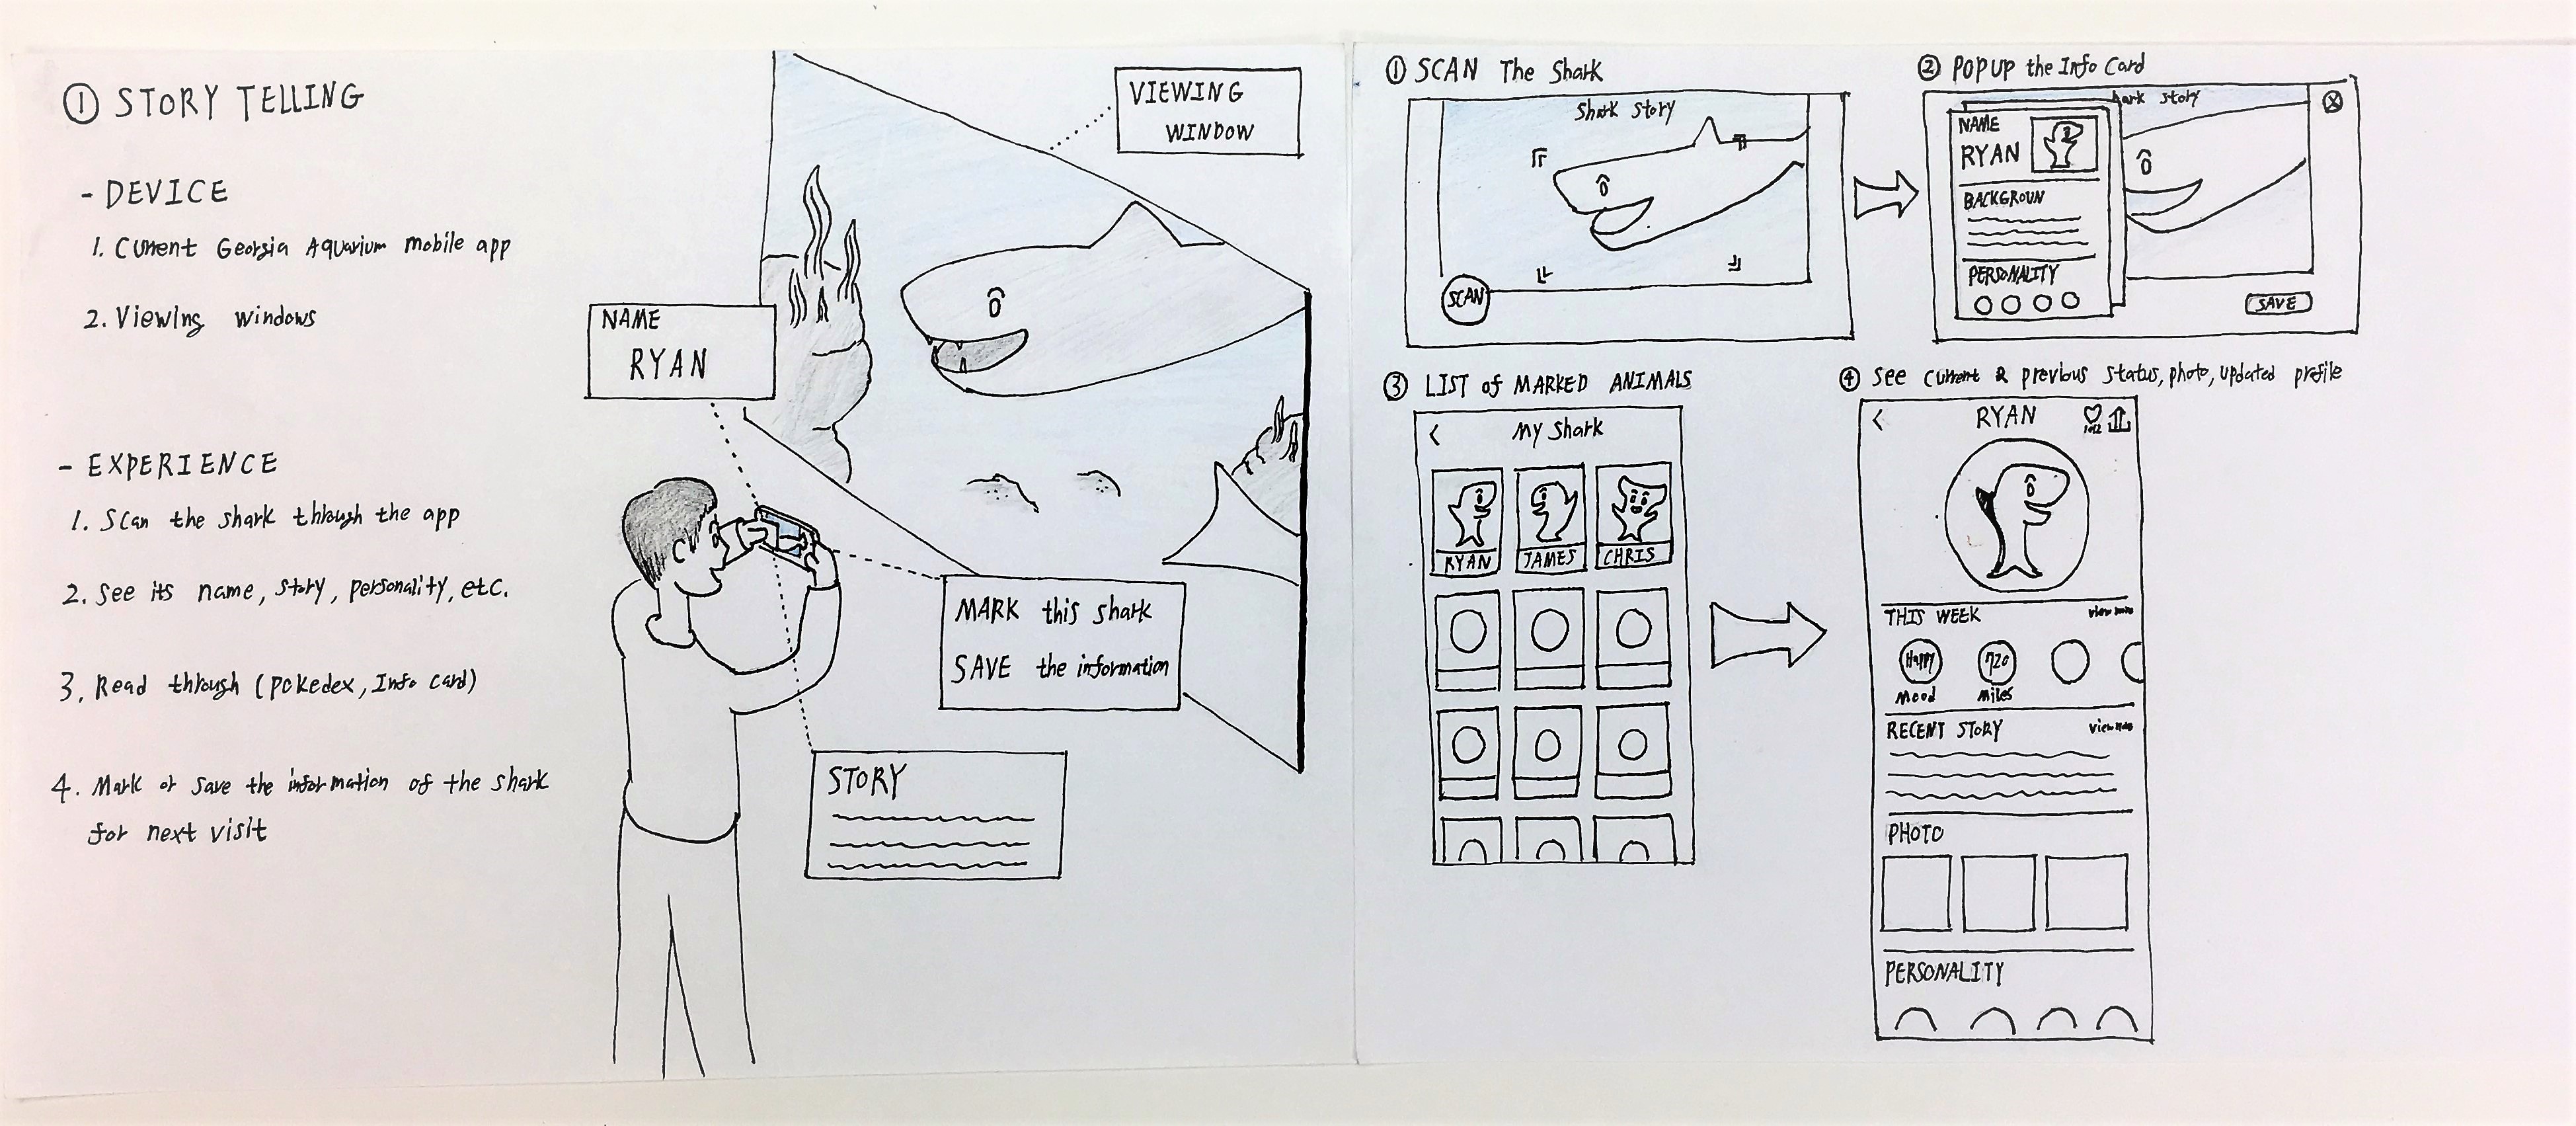 ① STORY TELLING
- DEVICE
1. Current Georgia Aquarium mobile app
2. Viewing windows
- EXPERIENCE
1. Scan the shark through the app
2. See its name, story, personality, etc.
3. Read through (pokedex, Info card)
4. Mark or save the information of the shark
for next visit
VIEWING
WINDOW
NAME
RYAN
MARK this shark
SAVE the information
STORY
① SCAN The Shark
Shark Story
SCAN
② POPUP the Info Card
ark story
NAME
RYAN
BACKGROUN
PERSONALITY
SAVE
③ LIST of MARKED ANIMALS
My Shark
RYAN
JAMES
CHRIS
④ See current & previous status, photo, updated profile
RYAN
THIS WEEK
view
Happy
720
Mood
miles
RECENT STORY
view
PHOTO
PERSONALITY